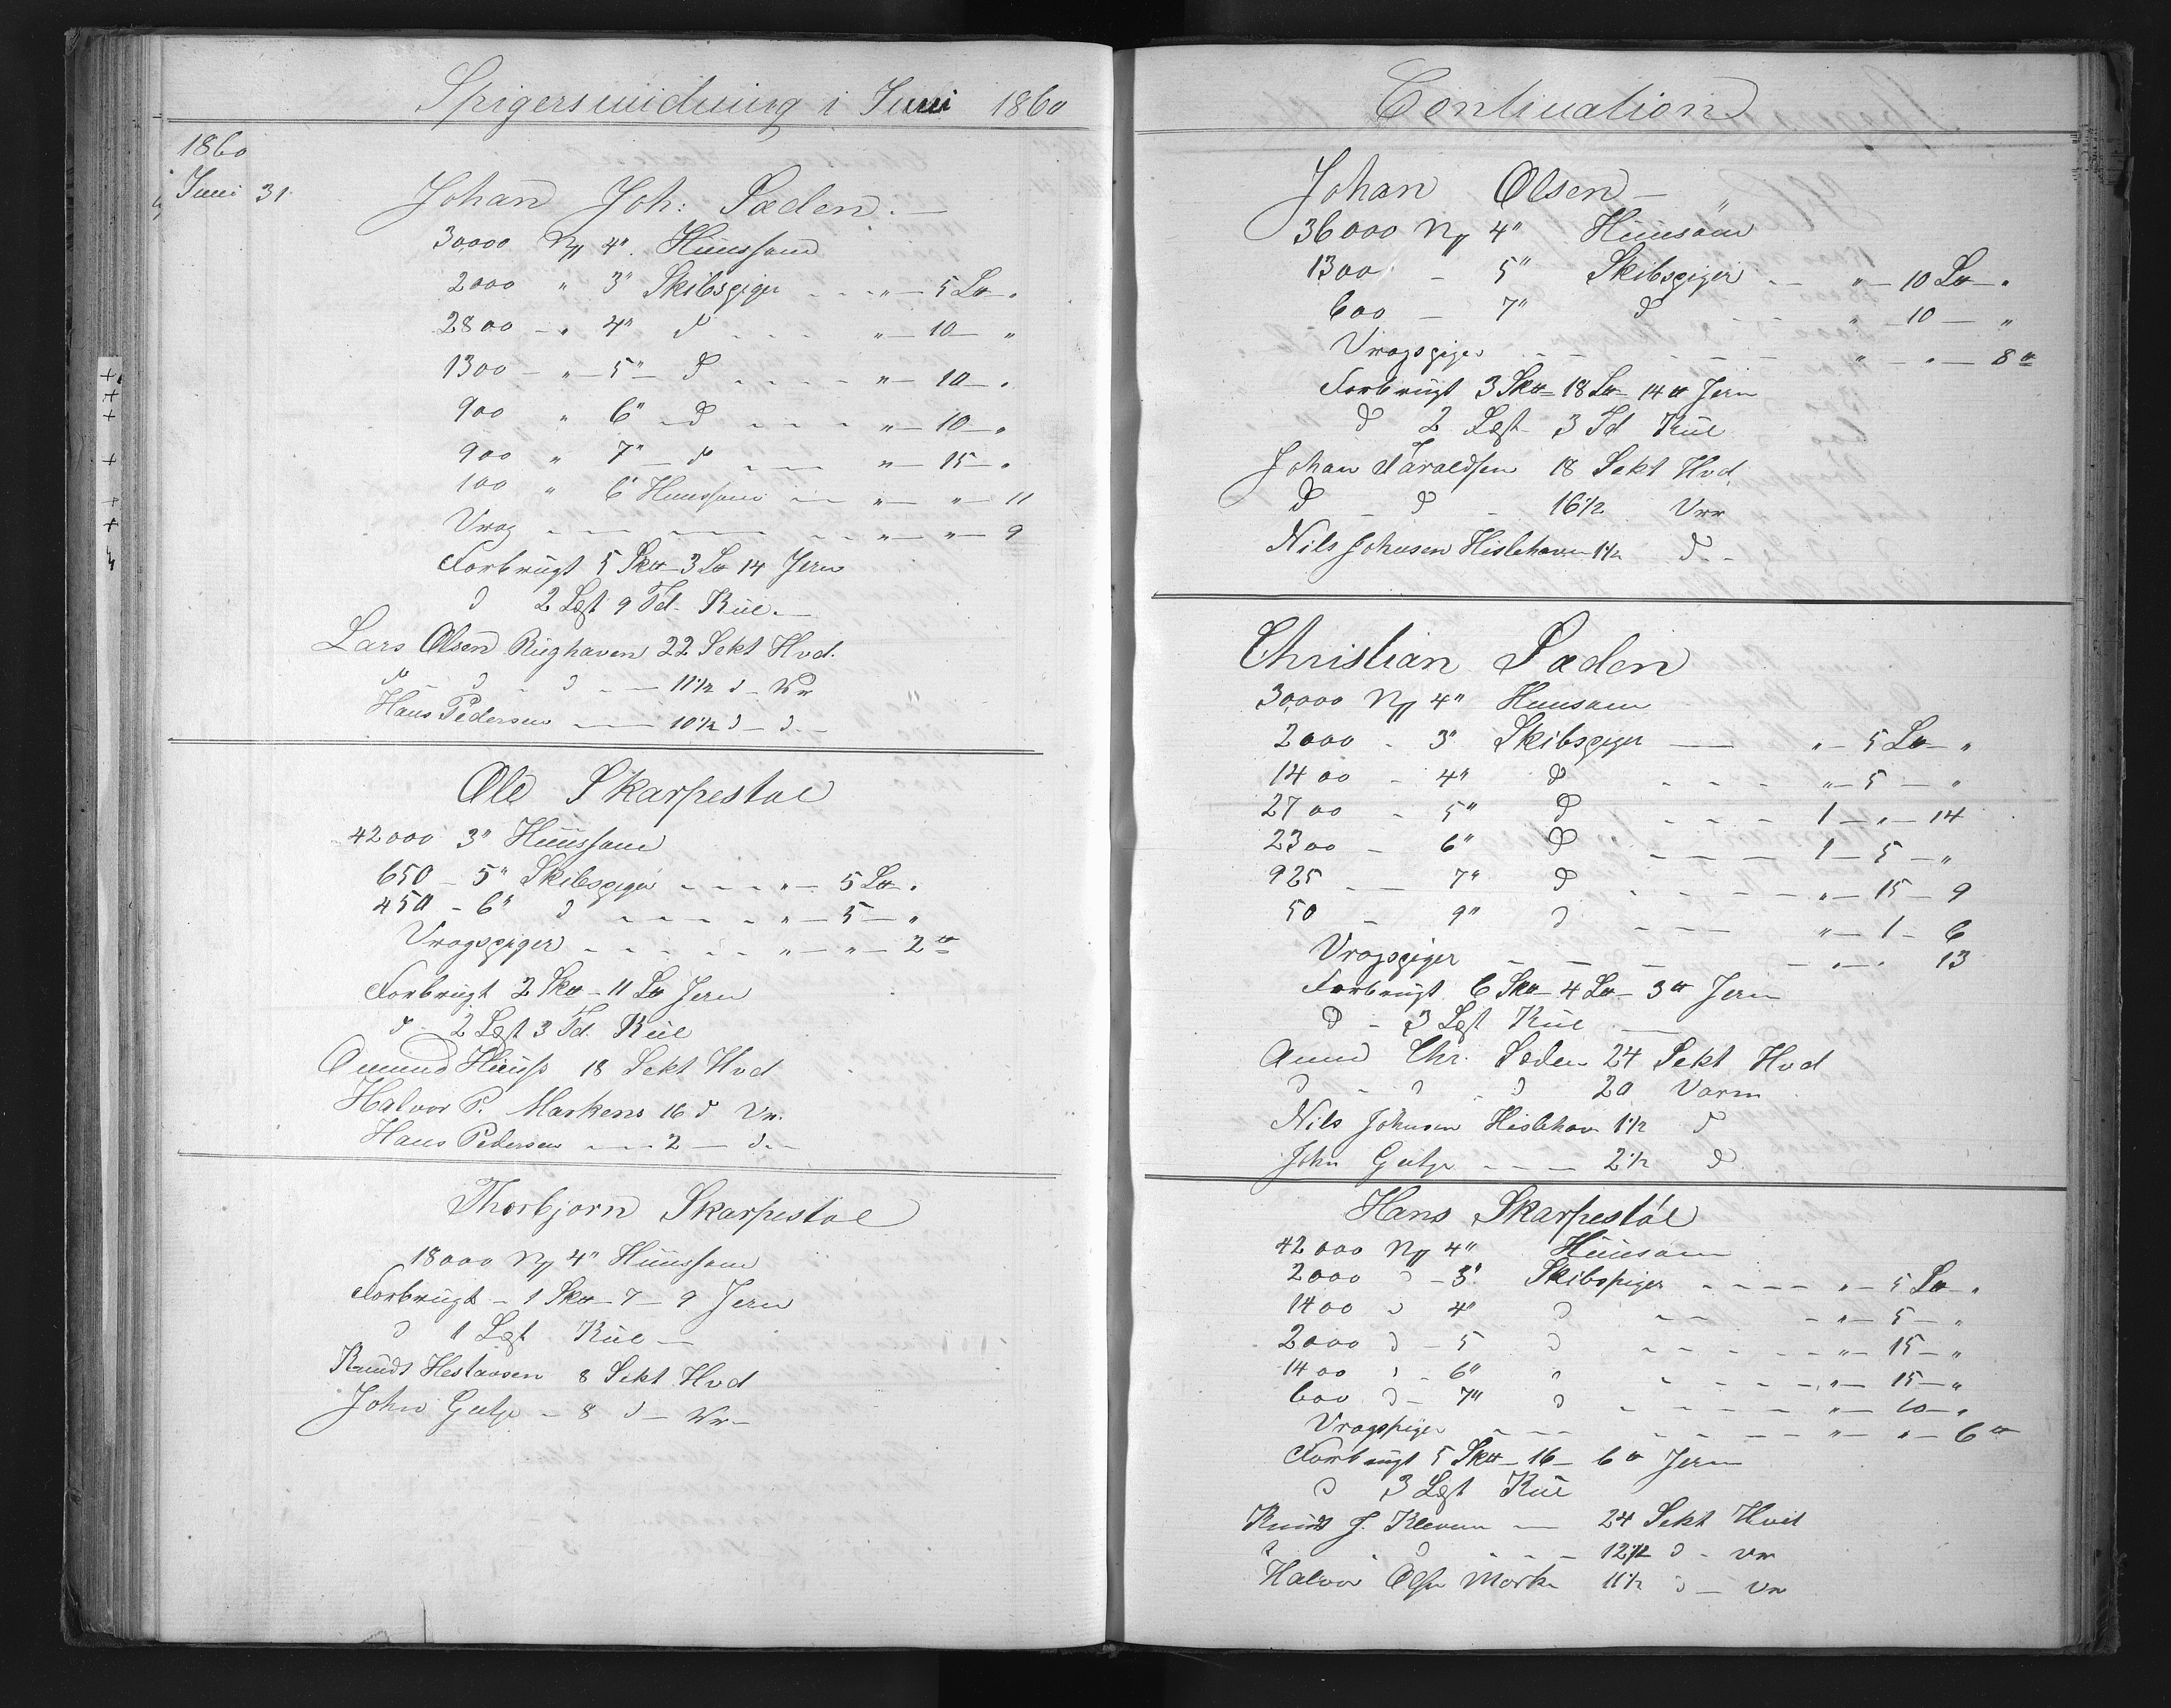 Spigersmidning i Juni 1860
1860
Juni 31.
Johan Joh: Sæden. —
30,000 N 4". Huussøm
2000 " 3" Skibspiger - - " — 5 L℔ "
2800 - " 4" d - - - " — 10 — "
1300 - " — 5" — d - - - - " — 10 — "
900 " 6" — d - - - " — 10 — "
900 " 7" — d - - - " — 15 — "
100 " 6" Huussøm - - " — " — 11
Vrag - - - - - - " — " — 9
Forbrugt 5 Sk℔ — 3 L℔ 14 Jern
d 2 Lest 9 Td. Kul. —
Lars Olsen Rughaven 22 Sekt Hvd.
d - d - d - - — 11½ d - Vr
Hans Pedersen — — 10½ d — d. -
Ole Skarpestøl
42000 3" Huussøm
650 - 5" Skibspiger - - - " — 5 L℔ "
450 - 6" d - - - - " — 5 — "
Vragspiger - - - - - " — " — 2 ℔
Forbrugt 2 Sk℔ — 11 L℔ Jern
d - 2 Lest 3 Td. Kul
Omund Huus 18 Sekt Hvd
Halvor P. Markens 16 d Vr.
Hans Pedersen — — 2 — d. -
Thorbjørn Skarpestøl
18000 N 4" Huussøm
Forbrugt - 1 Sk℔ — 7 — 9 Jern
d 1 Lest Kul —
Knudt Heslaasen 8 Sekt Hvd
John — 8 d — Vr —
Continuation
Johan Olsen — "
36000 N 4" Huusøm
1300 - 5" Skibspiger - - " — 10 L℔ — "
600 — 7" d - - " — 10 — "
Vragspiger - - - - - - " — " — 8 ℔
Forbrugt 3 Sk℔ — 18 L℔ 14 ℔ Jern
d 2 Lest 3 Td Kul
Johan Taraldsen 18 Sekt Hvd.
d - d - 16½ Vrr
Nils Johnsen Hislehaven 1½ d -
Christian Sæden
30,000 N 4" Huusøm
2000 - 3" Skibspiger — " — 5 L℔ — "
1400 - 4" d - - - " — 5 — "
2700 - 5" d - - - 1 — " — 14
2300 - 6" d - - - - 1 — 5 — "
925 - — 7" d - - - - " — 15 — 9
50 - 9" d - - - " — 1 — 6
Vragspiger - - - - - " — " 13
Forbrugt 6 Sk℔ — 4 L℔ — 3 ℔ Jern
d - 3 Lest Kul —
Amund Chr. Sæden 24 Sekt Hvd
d - d - d 20 Varm
Nils Johnsen Hislehav 1½ d
John - - — 2½ d
Hans Skarpestøl
42000 N 4" Huusøm
2000 d - 3" Skibspiger - - - - " — 5 L℔ — "
1400 d 4" d - - - " — 5 — "
2000 d - 5 d - - - - - " — 15 — "
1400 d - 6" " - - - - " — 15 — "
600 d - 7" d - - - - - " — 10 — "
Vragspiger - - - - - - - " — " — 6 ℔
Forbrugt 5 Sk℔ — 16 — 6 ℔ Jern
d 3 Lest Kul
Knudt J. Kleven — 24 Sekt Hvit
d - d - - - 12½ d - vr
Halvor Mark 11½ d — vr